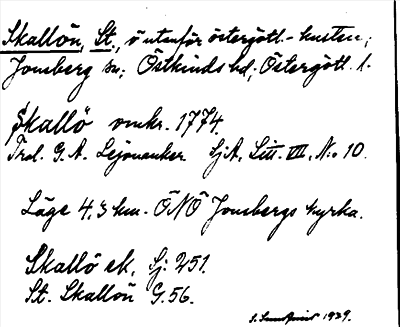 Skallön, St., ö utanför östergötl.-kusten;
Jonsberg sn; Östkinds hd; Östergötl. l.
Skallö omkr. 1774.
Trol. G. A. Lejonanker SjA, Litt. VIII, No 10.
Läge 4,3 km. ÖNÖ Jonsbergs kyrka.
Skallö ek, Sj: 251.
St. Skallön G. 56.
1939.